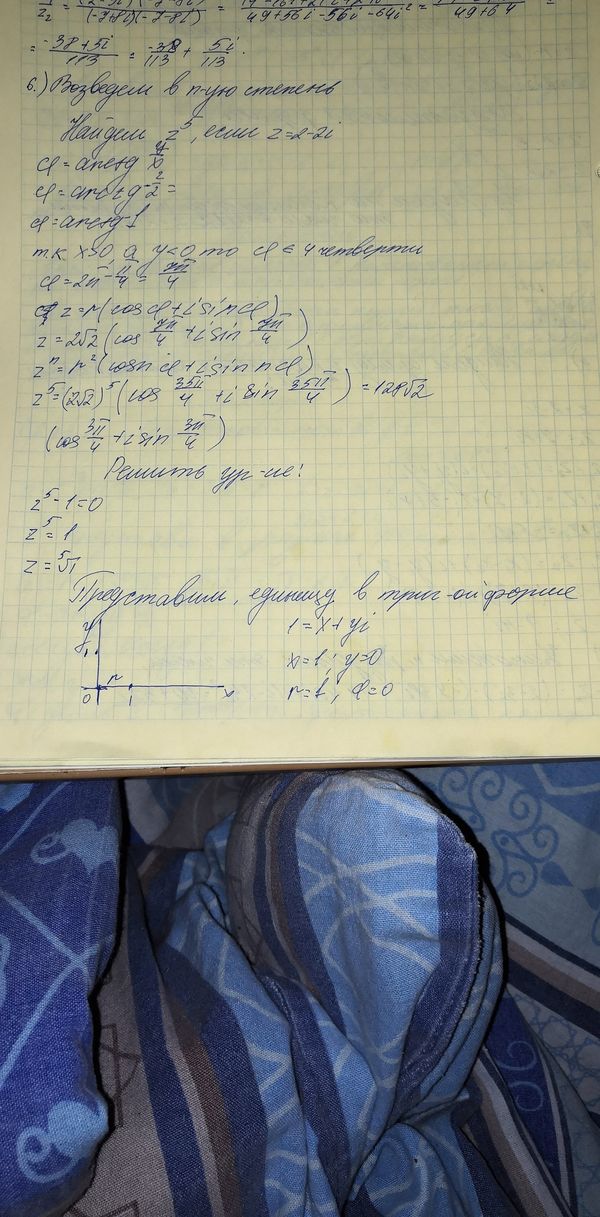 z₂ (-7+8i)(-7-8i) 49+56i-56i-64i² 49+64
= -38+5i/113 = -38/113 + 5i/113.
6.) Возведем в n-ую степень
Найдем z⁵, если z=2-2i
φ=arctg y/x
φ=arctg -2/2 =
φ=arctg-1
т.к x>0, а y<0, то φ ∈ 4 четверти
φ=2π-π/4=7π/4
z=r(cosφ+isinφ)
z=2√2(cos 7π/4 + isin 7π/4)
zⁿ=r²(cosnφ+isin nφ)
z⁵=(2√2)⁵(cos 35π/4 + i sin 35π/4)=128√2
(cos 3π/4 + isin 3π/4)
Решить ур-ие:
z⁵-1=0
z⁵=1
z=⁵√1
Представим, единицу в триг-ой форме
y 1=x+yi
1 x=1; y=0
r r=1; φ=0
0 1 x